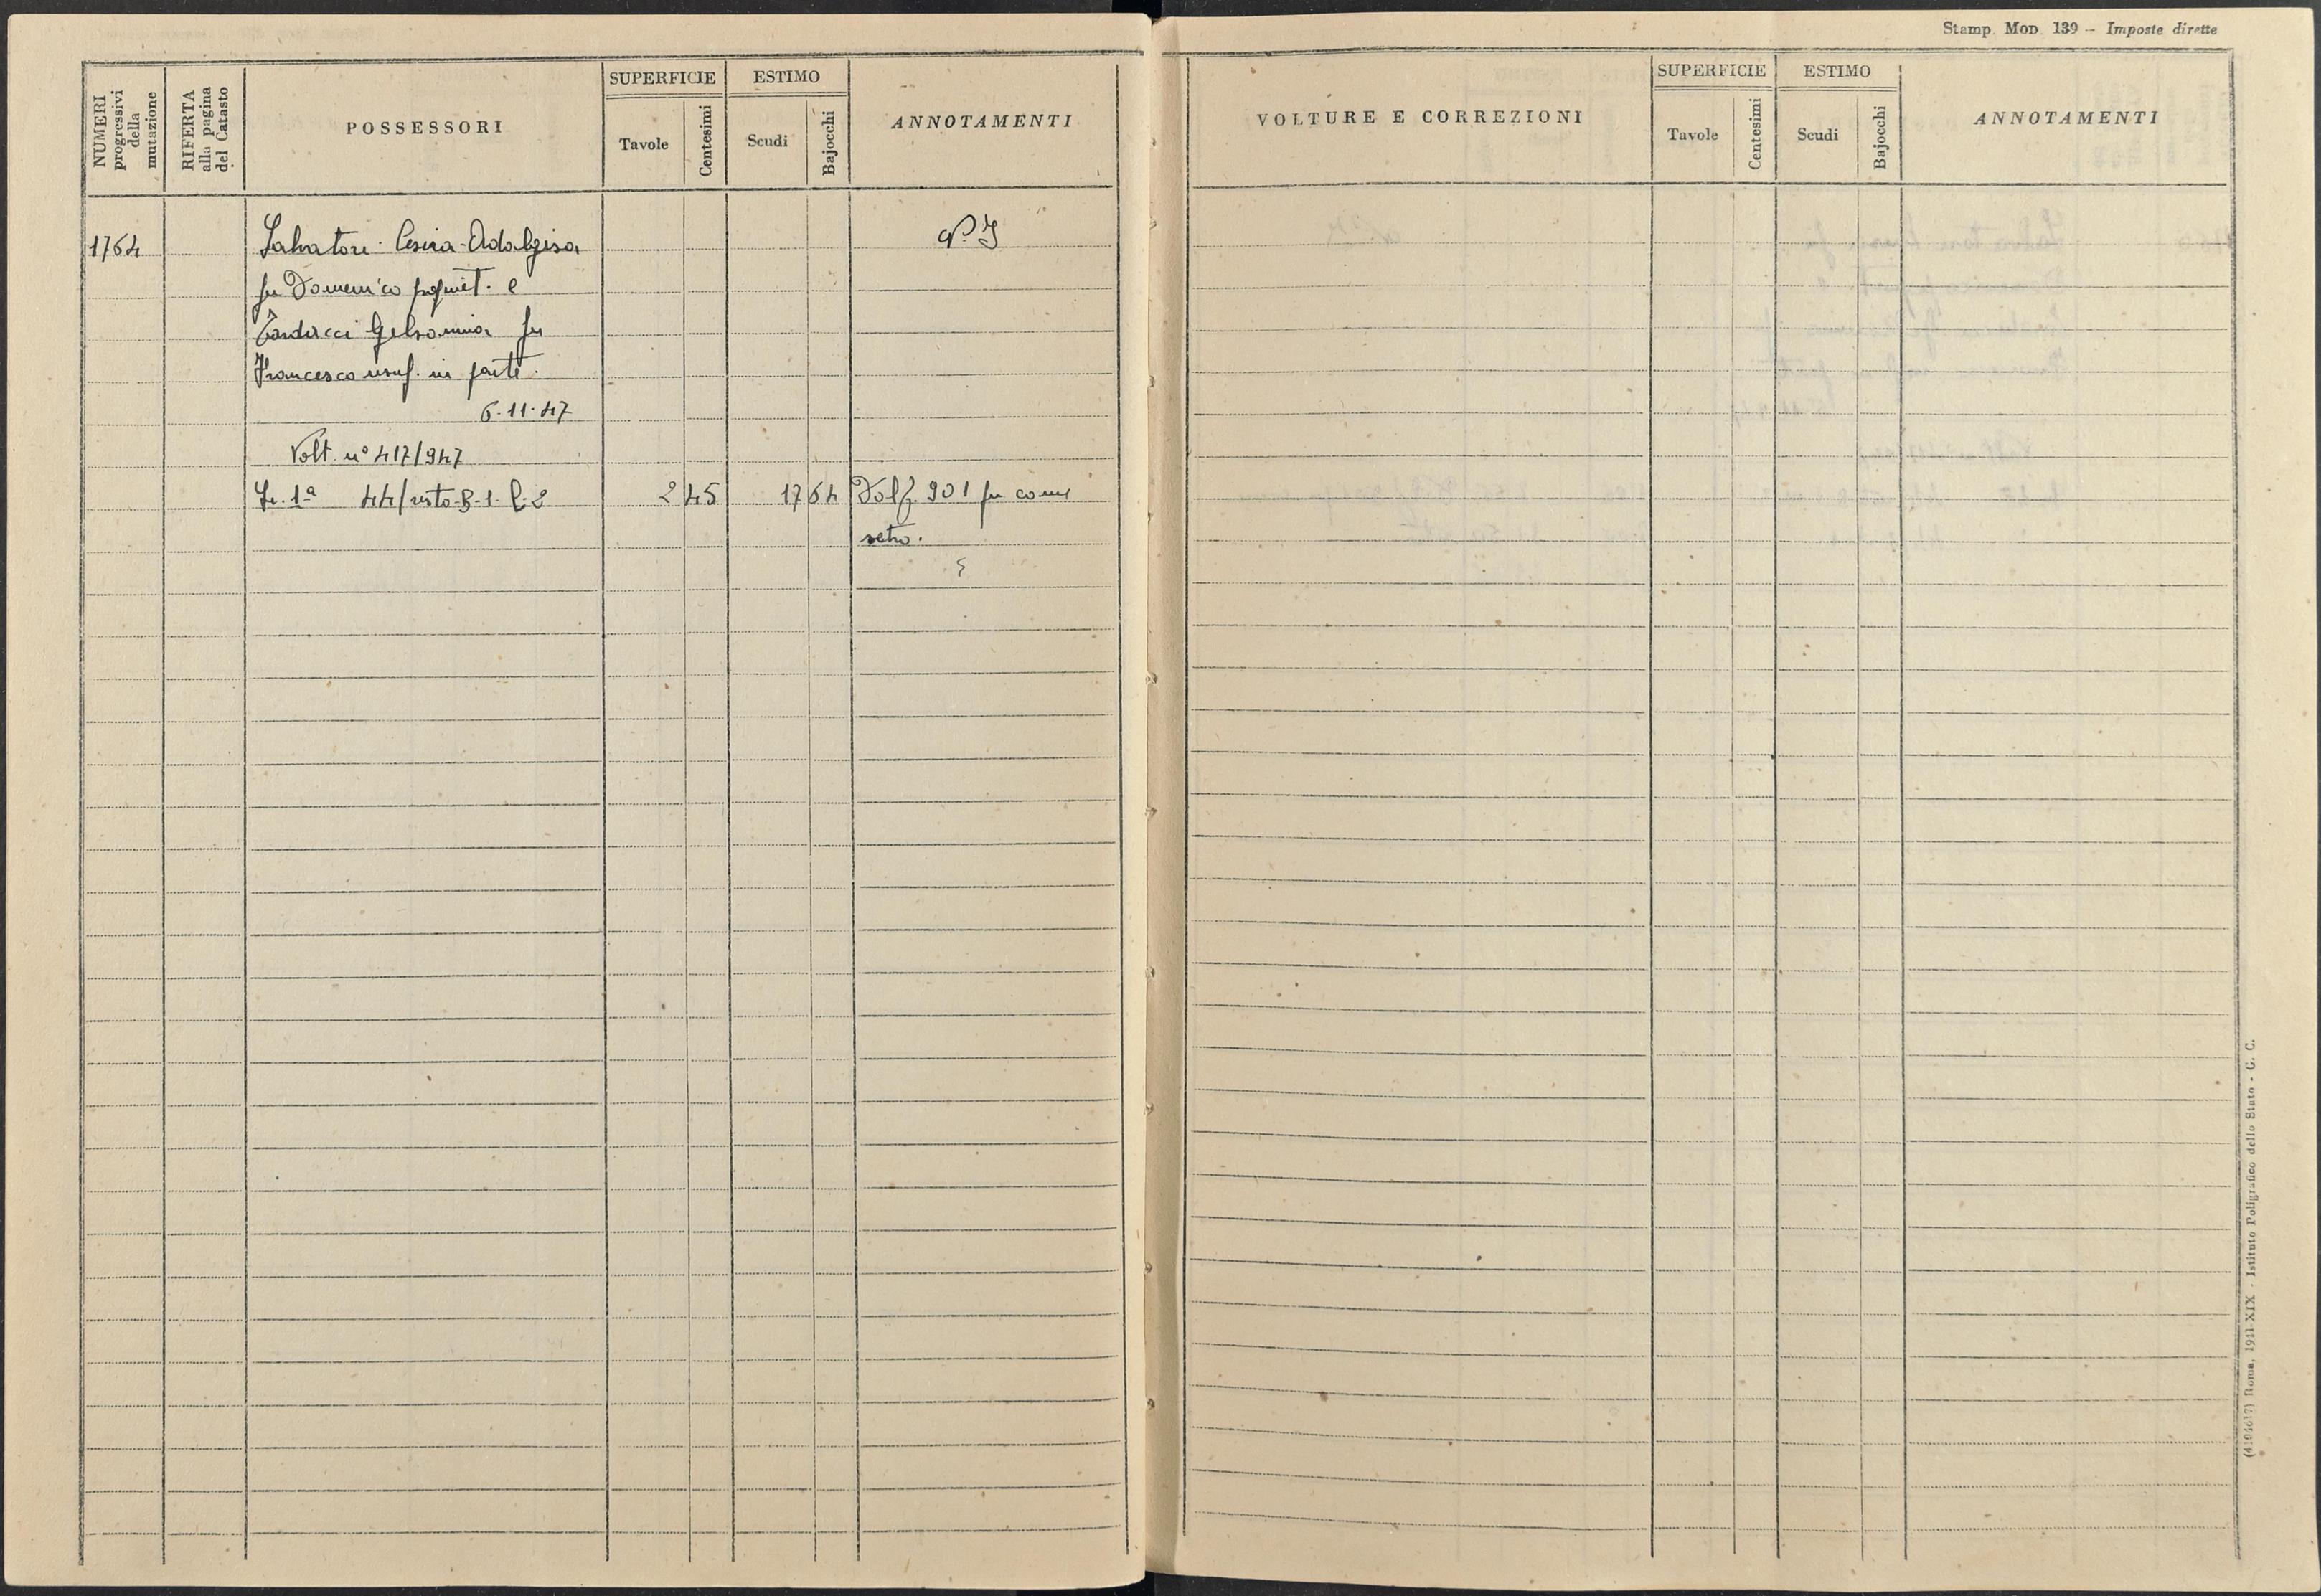 NUMERI progressivi della mutazione
RIFERTA alla pagina del Catasto
POSSESSORI
SUPERFICIE
Tavole
Centesimi
ESTIMO
Scudi
Bajocchi
ANNOTAMENTI
1764 Salvatori Cesira-Adalgisa N. I
fu Domenico propriet. e
Tarducci Gelsomina fu
Francesco usuf. in parte.
6.11.47
Volt. nº 417/947
Se. 1ª 44/resto-B-1-C-2 2 45 17 64 Dal f. 901 fu come
retro.
Stamp. Mod. 139 – Imposte dirette
VOLTURE E CORREZIONI
SUPERFICIE
Tavole
Centesimi
ESTIMO
Scudi
Bajocchi
ANNOTAMENTI
Roma, 1941-XIX - Istituto Poligrafico dello Stato - G. C.